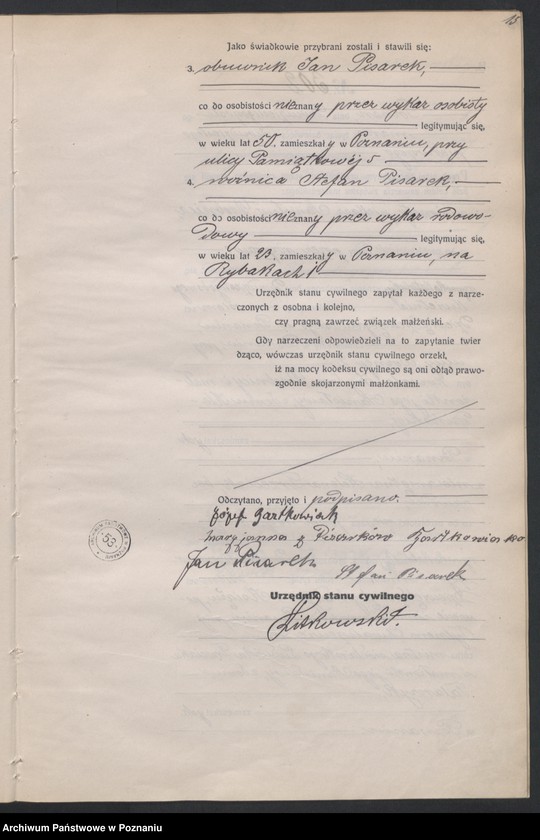 15
Jako świadkowie przybrani zostali i stawili się:
3. obuwnik Jan Pisarek,
co do osobistości nieznany przez wykaz osobisty
legitymując się,
w wieku lat 50, zamieszkały w Poznaniu, przy
ulicy Pamiątkowej 5
4. woźnica Stefan Pisarek,
co do osobistości nieznany przez wykaz rodowo-
dowy legitymując się,
w wieku lat 23, zamieszkały w Poznaniu, na
Rybakach
Urzędnik stanu cywilnego zapytał każdego z narze-
czonych z osobna i kolejno,
czy pragną zawrzeć związek małżeński.
Gdy narzeczeni odpowiedzieli na to zapytanie twier
dząco, wówczas urzędnik stanu cywilnego orzekł,
iż na mocy kodeksu cywilnego są oni odtąd prawo-
zgodnie skojarzonymi małżonkami.
Odczytano, przyjęto i podpisano.
Józef Bartkowiak
Maryjanna z Pisarków Bartkowiak
Jan Pisarek
Stefan Pisarek
Urzędnik stanu cywilnego
53
Archiwum Państwowe w Poznaniu